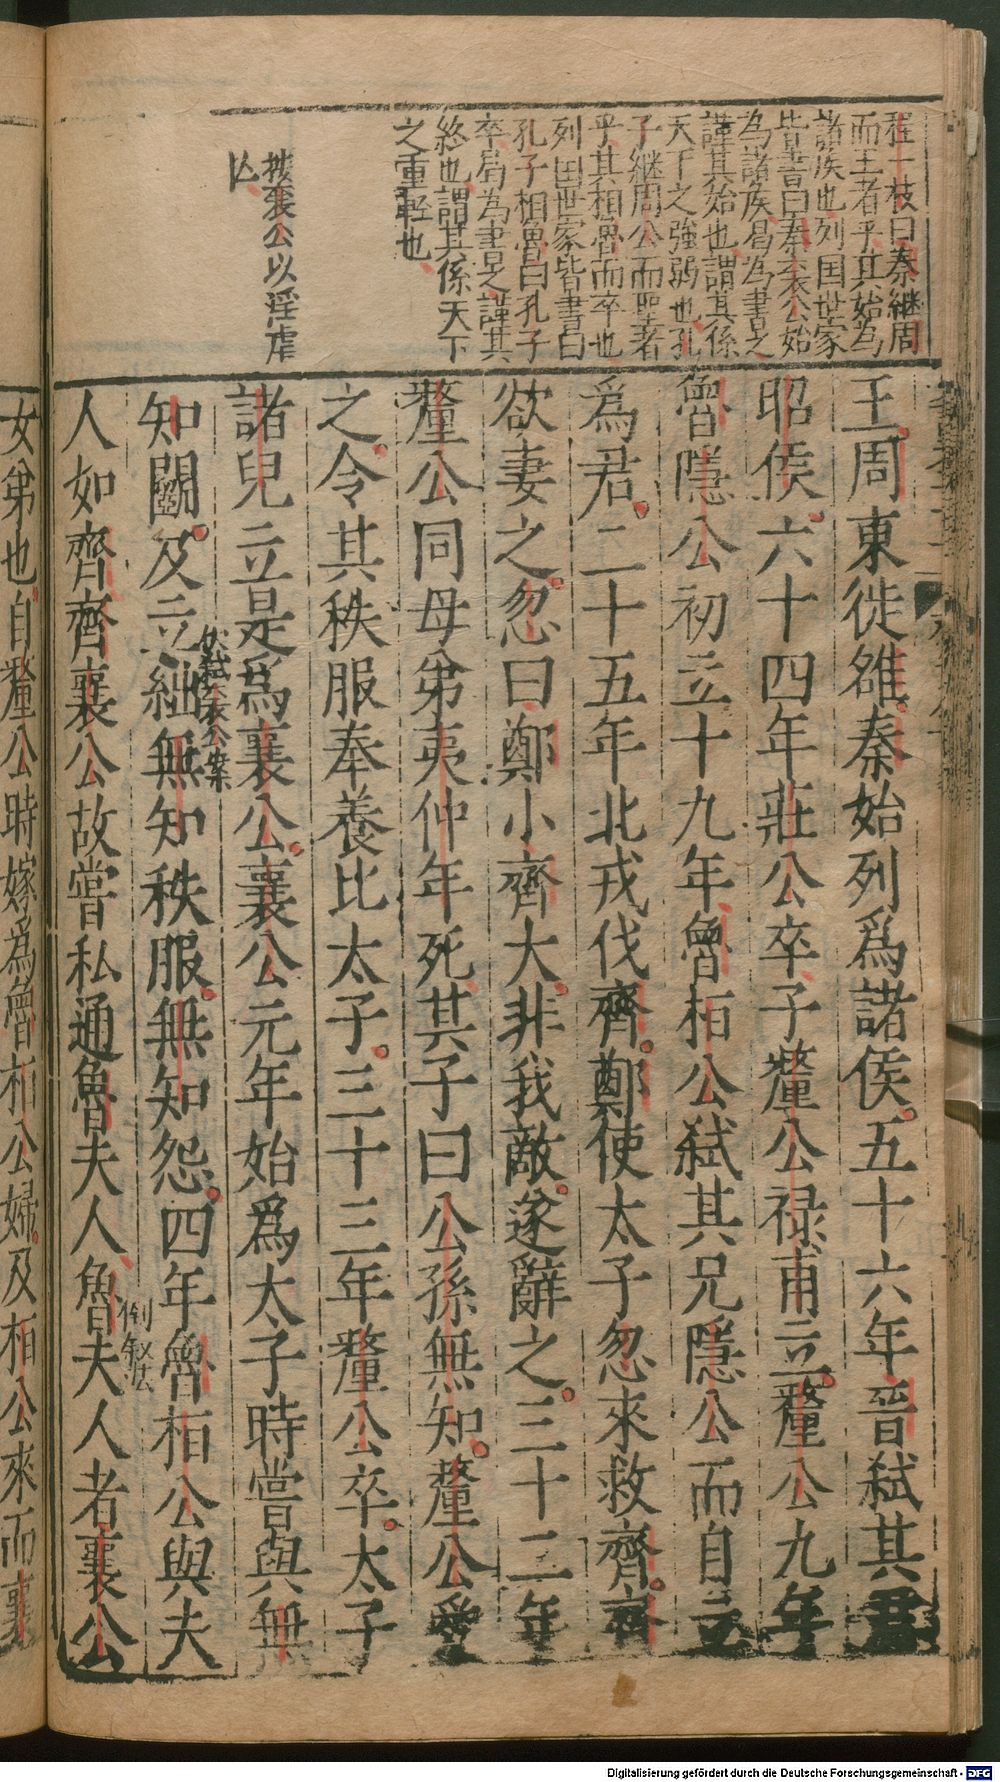 程一枝曰秦継周
而王者乎其始為
諸侯也列国世家
皆書曰秦襄公始
為諸侯曷為書之
謹其始也謂其係
天下之強弱也孔
子継周公而聖者
乎其相魯而卒也
列国世家皆書曰
孔子相魯曰孔子
卒曷為書是謹其
終也謂其係天下
之重軽也
按襄公以淫虐
亾
王周東徙雒秦始列爲諸侯五十六年晉弑其君
昭侯六十四年莊公卒子釐公禄甫立釐公九年
魯隱公初立十九年魯桓公弑其兄隱公而自立
爲君二十五年北戎伐齊鄭使太子忽來救齊齊
欲妻之忽曰鄭小齊大非我敵遂辭之三十二年
釐公同母弟夷仲年死其子曰公孫無知釐公愛
之令其秩服奉養比太子三十三年釐公卒太子
諸兒立是爲襄公襄公元年始爲太子時嘗與無
知鬬及立絀無知秩服無知怨四年魯桓公與夫
伏弑襄公案
人如齊齊襄公故嘗私通魯夫人魯夫人者襄公
倒叙法
女弟也自釐公時嫁爲魯桓公婦及桓公來而襄
Digitalisierung gefördert durch die Deutsche Forschungsgemeinschaft - DFG